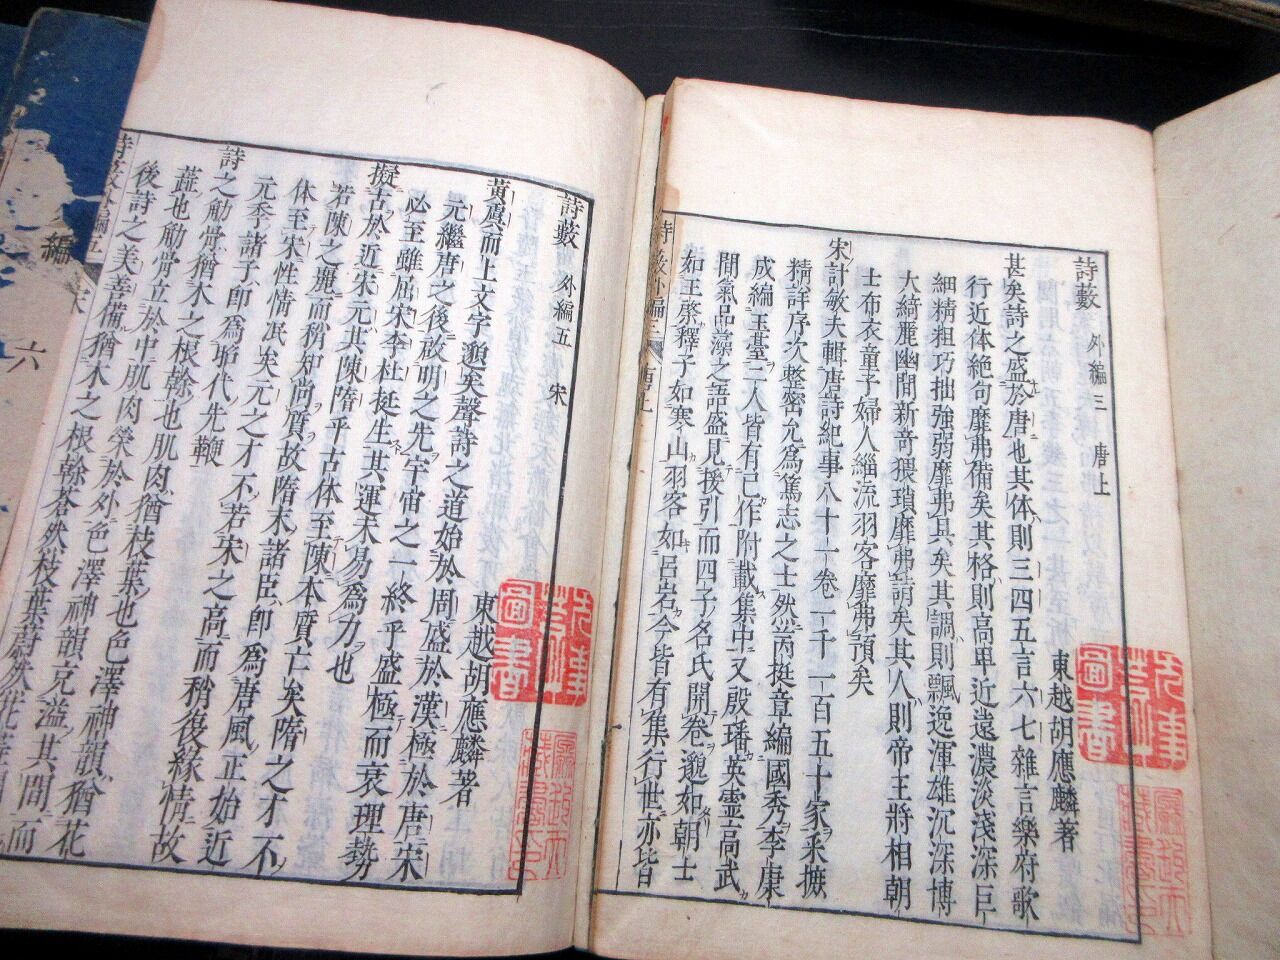 詩藪 外編三 唐上
東越胡應麟著
甚矣詩之盛於唐也其体則三四五言六七雜言樂府歌
行近体絶句靡弗備矣其格則高卑近遠濃淡淺深巨
細精粗巧拙強弱靡弗具矣其調則飄逸渾雄沉深博
大綺麗幽閒新奇猥瑣靡弗詣矣其人則帝王將相朝
士布衣童子婦人緇流羽客靡弗預矣
宋計敏夫輯唐詩紀事八十一卷一千一百五十家采摭
精詳序次整密允為篤志之士然芮挺章編國秀李康
成編玉臺二人皆有己作附載集中又殷璠英靈高武
間氣品藻之語盛見援引而四子名氏開卷邈如朝士
如王棨釋子如寒山羽客如呂岩今皆有集行世亦皆
詩藪外編三 唐上
詩藪 外編五 宋
東越胡應麟著
黃虞而上文字邈矣聲詩之道始於周盛於漢極於唐宋
元繼唐之後啟明之先宇宙之一終乎盛極而衰理勢
必至雖屈宋李杜挺生其運未易為力也
擬古於近宋元其陳隋乎古体至陳本質亡矣隋之才不
若陳之麗而稍知尚質故隋末諸臣即為唐風正始近
体至宋性情泯矣元之才不若宋之高而稍復緣情故
元季諸子即為昭代先鞭
詩之觔骨猶木之根幹也肌肉猶枝葉也色澤神韻猶花
蕋也觔骨立於中肌肉榮於外色澤神韻充溢其間而
後詩之美善備猶木之根幹蒼然枝葉蔚然花蕋
詩藪外編五
圖書
圖書
編
六